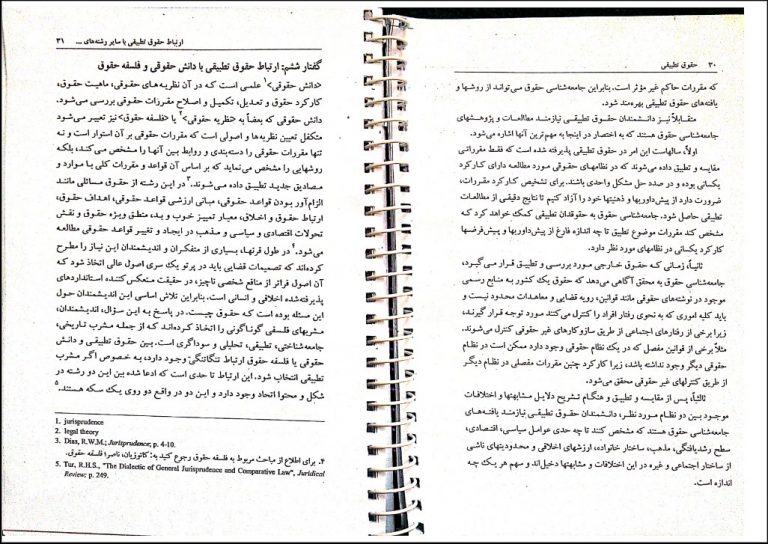 ۳۰ حقوق تطبیقی
که مقررات حاکم غیر مؤثر است. بنابراین جامعه‌شناسی حقوق می‌تواند از روشها و
یافته‌های حقوق تطبیقی بهره‌مند شود.
متقابلاً نیز دانشمندان حقوق تطبیقی نیازمند مطالعات و پژوهشهای
جامعه‌شناسی حقوق هستند که به اختصار در اینجا به مهم‌ترین آنها اشاره می‌شود.
اولاً، سالهاست این امر در حقوق تطبیقی پذیرفته شده است که فقط مقرراتی
مقایسه و تطبیق داده می‌شوند که در نظامهای حقوقی مورد مطالعه دارای کارکرد
یکسانی بوده و در صدد حل مشکل واحدی باشند. برای تشخیص کارکرد مقررات،
ضرورت دارد از پیش‌داوریها و ذهنیتها خود را آزاد کنیم تا نتایج دقیقی از مطالعات
تطبیقی حاصل شود. جامعه‌شناسی حقوق به حقوقدان تطبیقی کمک خواهد کرد که
مشخص کند مقررات موضوع تطبیق تا چه اندازه فارغ از پیش‌داوریها و پیش‌فرضها
کارکرد یکسانی در نظامهای مورد نظر دارد.
ثانیاً، زمانی که حقوق خارجی مورد بررسی و تطبیق قرار می‌گیرد،
جامعه‌شناسی حقوق به محقق آگاهی می‌دهد که حقوق یک کشور به منابع رسمی
موجود در نوشته‌های حقوقی مانند قوانین، رویه قضایی و معاهدات محدود نیست و
باید کلیه اموری که به نحوی رفتار افراد را کنترل می‌کنند مورد توجه قرار گیرند،
زیرا برخی از رفتارهای اجتماعی از طریق سازوکارهای غیر حقوقی کنترل می‌شوند.
مثلاً برخی از قوانین مفصل که در یک نظام حقوقی وجود دارد ممکن است در نظام
حقوقی دیگر وجود نداشته باشد، زیرا کارکرد چنین مقررات مفصلی در نظام دیگر
از طریق کنترلهای غیر حقوقی محقق می‌شود.
ثالثاً، پس از مقایسه و تطبیق و هنگام تشریح دلایل مشابهتها و اختلافات
موجود بین دو نظام مورد نظر، دانشمندان حقوق تطبیقی نیازمند یافته‌های
جامعه‌شناسی حقوق هستند که مشخص کنند تا چه حدی عوامل سیاسی، اقتصادی،
سطح رشدیافتگی، مذهب، ساختار خانواده، ارزشهای اخلاقی و محدودیتهای ناشی
از ساختار اجتماعی و غیره در این اختلافات و مشابهتها دخیل‌اند و سهم هر یک چه
اندازه است.
ارتباط حقوق تطبیقی با سایر رشته‌های ... ۳۱
گفتار ششم: ارتباط حقوق تطبیقی با دانش حقوقی و فلسفه حقوق
«دانش حقوقی»۱ علمی است که در آن نظریه‌های حقوقی، ماهیت حقوق،
کارکرد حقوق و تعدیل، تکمیل و اصلاح مقررات حقوقی بررسی می‌شود.
دانش حقوقی که بعضاً به «نظریه حقوقی»۲ یا «فلسفه حقوق» نیز تعبیر می‌شود
متکفل تعیین نظریه‌ها و اصولی است که مقررات حقوقی بر آن استوار است و نه
تنها مقررات حقوقی را دسته‌بندی و روابط بین آنها را مشخص می‌کند، بلکه
روشهایی را مشخص می‌نماید که بر اساس آن قواعد و مقررات کلی با موارد و
مصادیق جدید تطبیق داده می‌شوند.۳ در این رشته از حقوق مسائلی مانند
الزام‌آور بودن قواعد حقوقی، مبانی ارزشی قواعد حقوقی، اهداف حقوق،
ارتباط حقوق و اخلاق، معیار تمییز خوب و بد، منطق ویژه حقوق و نقش
تحولات اقتصادی و سیاسی و مذهب در ایجاد و تغییر قواعد حقوقی مطالعه
می‌شود.۴ در طول قرنها، بسیاری از متفکران و اندیشمندان این نیاز را مطرح
کرده‌اند که تصمیمات قضایی باید در پرتو یک سری اصول عالی اتخاذ شود که
آن اصول فراتر از منافع شخصی ناچیز، در حقیقت منعکس‌کننده استانداردهای
پذیرفته‌شده اخلاقی و انسانی است. بنابراین تلاش اساسی این اندیشمندان حول
این مسئله بوده است که حقوق چیست. در پاسخ به این سؤال، اندیشمندان،
مشربهای فلسفی گوناگونی را اتخاذ کرده‌اند که از جمله مشرب تاریخی،
جامعه‌شناختی، تطبیقی، تحلیلی و سوداگری است. بین حقوق تطبیقی و دانش
حقوقی یا فلسفه حقوق ارتباط تنگاتنگی وجود دارد، به خصوص اگر مشرب
تطبیقی انتخاب شود. این ارتباط تا حدی است که ادعا شده بین این دو رشته در
شکل و محتوا اتحاد وجود دارد و این دو در واقع دو روی یک سکه هستند.۵
1. jurisprudence
2. legal theory
3. Dias, R.W.M.; Jurisprudence; p. 4-10.
۴. برای اطلاع از مباحث مربوط به فلسفه حقوق رجوع کنید به: کاتوزیان، ناصر؛ فلسفه حقوق.
5. Tur, R.H.S., "The Dialectic of General Jurisprudence and Comparative Law", Juridical
Review; p. 249.